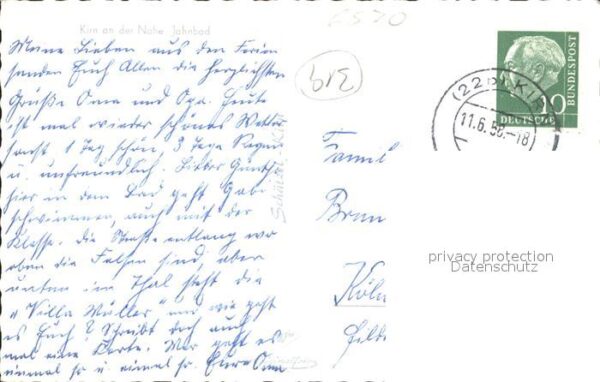 Kirn an der Nahe Jahnbad
6570
Meine Lieben aus den Ferien
senden Euch Allen die herzlichsten
Grüße Oma und Opa. Heute
ist mal wieder schönes Wetter
sonst 1 Tag schön, 3 Tage Regen
u. unfreundlich. Lieber Günther
hier in dem Bad geht Gabi
schwimmen, auch mit der
Klasse. die Straße entlang wo
oben die Felsen sind, aber
unten im Thal steht die
"Villa Müller" und wie geht
es Euch? Schreibt doch auch
mal eine Karte. Mir geht es
einmal so u einmal so. Eure Oma
Famil
Brun
Köln
DEUTSCHE
BUNDESPOST
(22b) KI
11.6.58.-18
privacy protection
Datenschutz